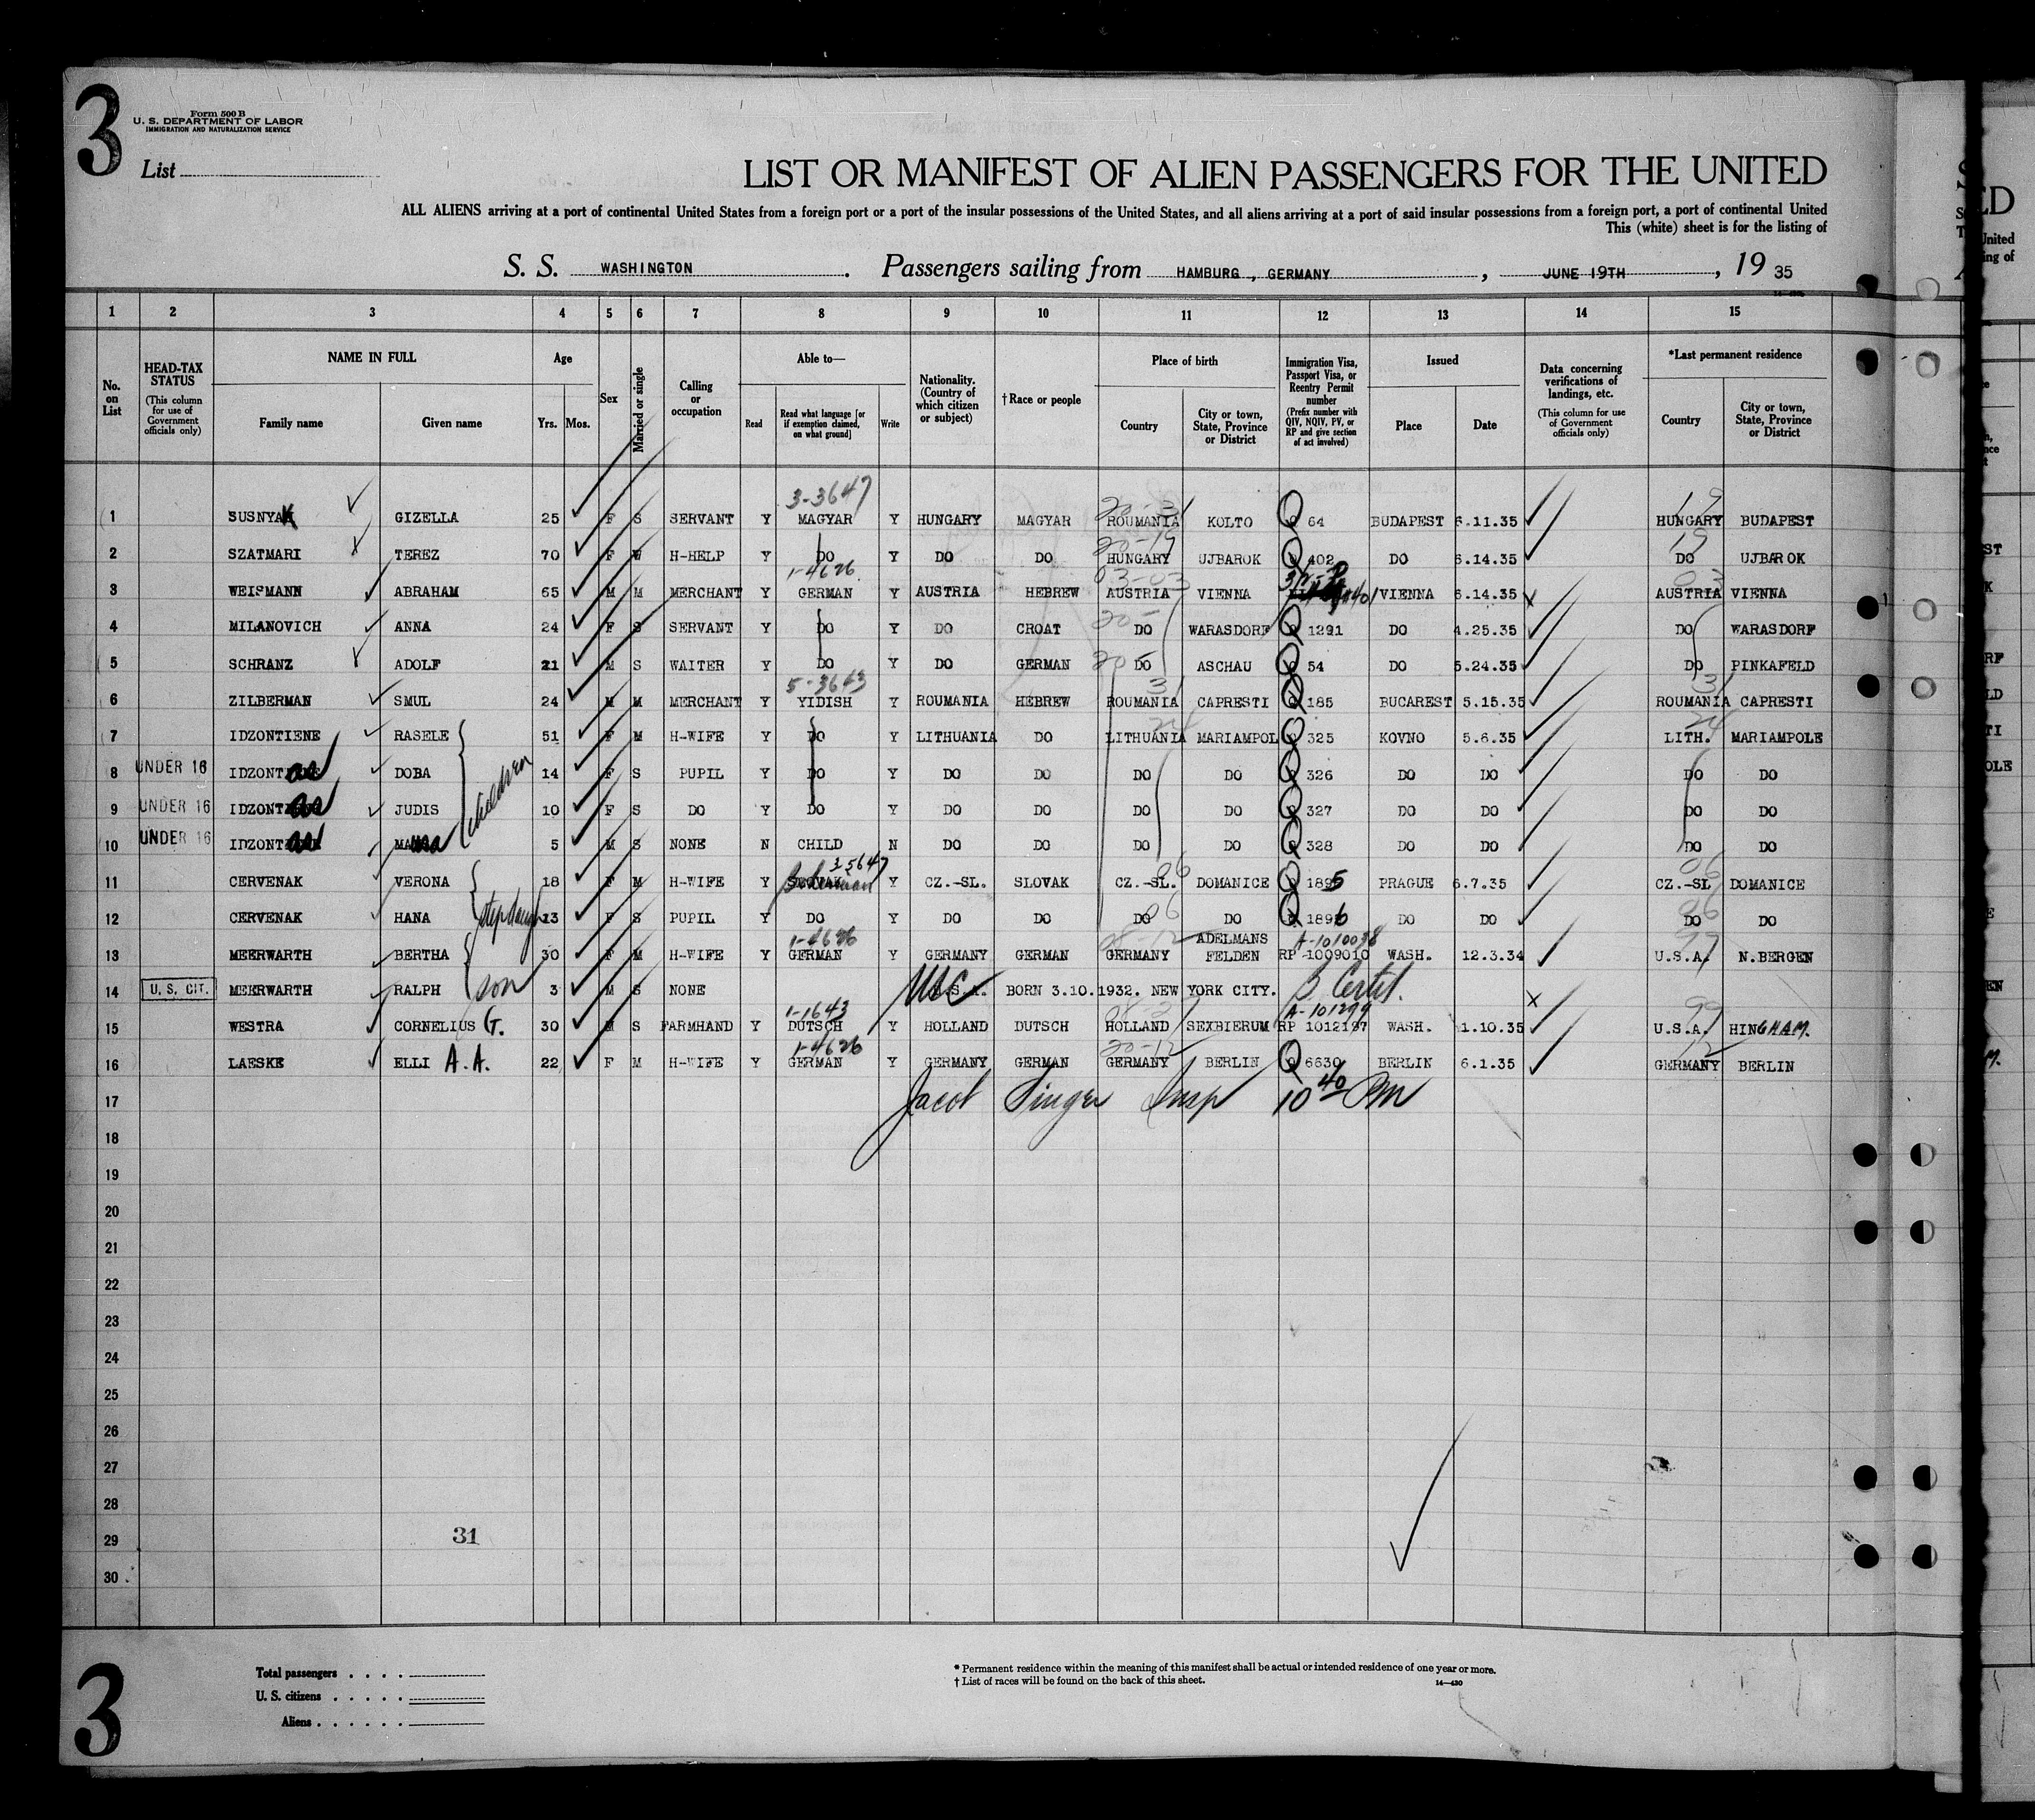 3
Form 500 B
U. S. DEPARTMENT OF LABOR
IMMIGRATION AND NATURALIZATION SERVICE
List
LIST OR MANIFEST OF ALIEN PASSENGERS FOR THE UNITED
ALL ALIENS arriving at a port of continental United States from a foreign port or a port of the insular possessions of the United States, and all aliens arriving at a port of said insular possessions from a foreign port, a port of continental United
This (white) sheet is for the listing of
S. S. WASHINGTON . Passengers sailing from HAMBURG , GERMANY , JUNE 19TH , 19 35
1 2 3 4 5 6 7 8 9 10 11 12 13 14 15
No. on List
HEAD-TAX STATUS (This column for use of Government officials only)
NAME IN FULL Family name Given name
Age Yrs. Mos.
Sex
Married or single
Calling or occupation
Able to— Read Read what language [or if exemption claimed, on what ground] Write
Nationality. (Country of which citizen or subject)
†Race or people
Place of birth Country City or town, State, Province or District
Immigration Visa, Passport Visa, or Reentry Permit number (Prefix number with QIV, NQIV, PV, or RP and give section of act involved)
Issued Place Date
Data concerning verifications of landings, etc. (This column for use of Government officials only)
*Last permanent residence Country City or town, State, Province or District
3-3647 20-31 19
1 SUSNYAK GIZELLA 25 F S SERVANT Y MAGYAR Y HUNGARY MAGYAR ROUMANIA KOLTO Q 64 BUDAPEST 6.11.35 HUNGARY BUDAPEST
20-19 19
2 SZATMARI TEREZ 70 F W H-HELP Y DO Y DO DO HUNGARY UJBAROK Q 402 DO 6.14.35 DO UJBAROK
1-4626 03-03 03
3 WEISMANN ABRAHAM 65 M M MERCHANT Y GERMAN Y AUSTRIA HEBREW AUSTRIA VIENNA VIENNA 6.14.35 AUSTRIA VIENNA
20-
4 MILANOVICH ANNA 24 F S SERVANT Y DO Y DO CROAT DO WARASDORF Q 1291 DO 4.25.35 DO WARASDORF
20-
5 SCHRANZ ADOLF 21 M S WAITER Y DO Y DO GERMAN DO ASCHAU Q 54 DO 5.24.35 DO PINKAFELD
5-3643 31 31
6 ZILBERMAN SMUL 24 M M MERCHANT Y YIDISH Y ROUMANIA HEBREW ROUMANIA CAPRESTI Q 185 BUCAREST 5.15.35 ROUMANIA CAPRESTI
24 24
7 IDZONTIENE RASELE 51 F M H-WIFE Y DO Y LITHUANIA DO LITHUANIA MARIAMPOL Q 325 KOVNO 5.6.35 LITH. MARIAMPOLE
UNDER 16
8 IDZONTas DOBA children 14 F S PUPIL Y DO Y DO DO DO DO Q 326 DO DO DO DO
UNDER 16
9 IDZONTas JUDIS 10 F S DO Y DO Y DO DO DO DO Q 327 DO DO DO DO
UNDER 16
10 IDZONTas 5 M S NONE N CHILD N DO DO DO DO Q 328 DO DO DO DO
3-5647 06 06
11 CERVENAK VERONA 18 F M H-WIFE Y Y CZ.-SL. SLOVAK CZ.-SL. DOMANICE Q 1895 PRAGUE 6.7.35 CZ.-SL DOMANICE
06 06
12 CERVENAK HANA stepdaugh 13 F S PUPIL Y DO Y DO DO DO DO Q 1896 DO DO DO DO
1-4626 08-12 A-1010038 99
13 MEERWARTH BERTHA 30 F M H-WIFE Y GERMAN Y GERMANY GERMAN GERMANY ADELMANS FELDEN RP -1009010 WASH. 12.3.34 U.S.A. N.BERGEN
14 U. S. CIT. MEERWARTH RALPH son 3 M S NONE USC U.S.A. BORN 3.10.1932. NEW YORK CITY. B Certif. X
1-1643 08-27 99
15 WESTRA CORNELIUS G. 30 M S FARMHAND Y DUTSCH Y HOLLAND DUTSCH HOLLAND SEXBIERUM RP 1012197 WASH. 1.10.35 U.S.A. HINGHAM.
1-4626 20-12 12
16 LAESKE ELLI A.A. 22 F M H-WIFE Y GERMAN Y GERMANY GERMAN GERMANY BERLIN Q 6630 BERLIN 6.1.35 GERMANY BERLIN
17 Jacob Singer Insp 10 40 PM
18
19
20
21
22
23
24
25
26
27
28
29 31
30
3
Total passengers . . . .
U. S. citizens . . . . .
Aliens . . . . . .
* Permanent residence within the meaning of this manifest shall be actual or intended residence of one year or more.
† List of races will be found on the back of this sheet.
14—430